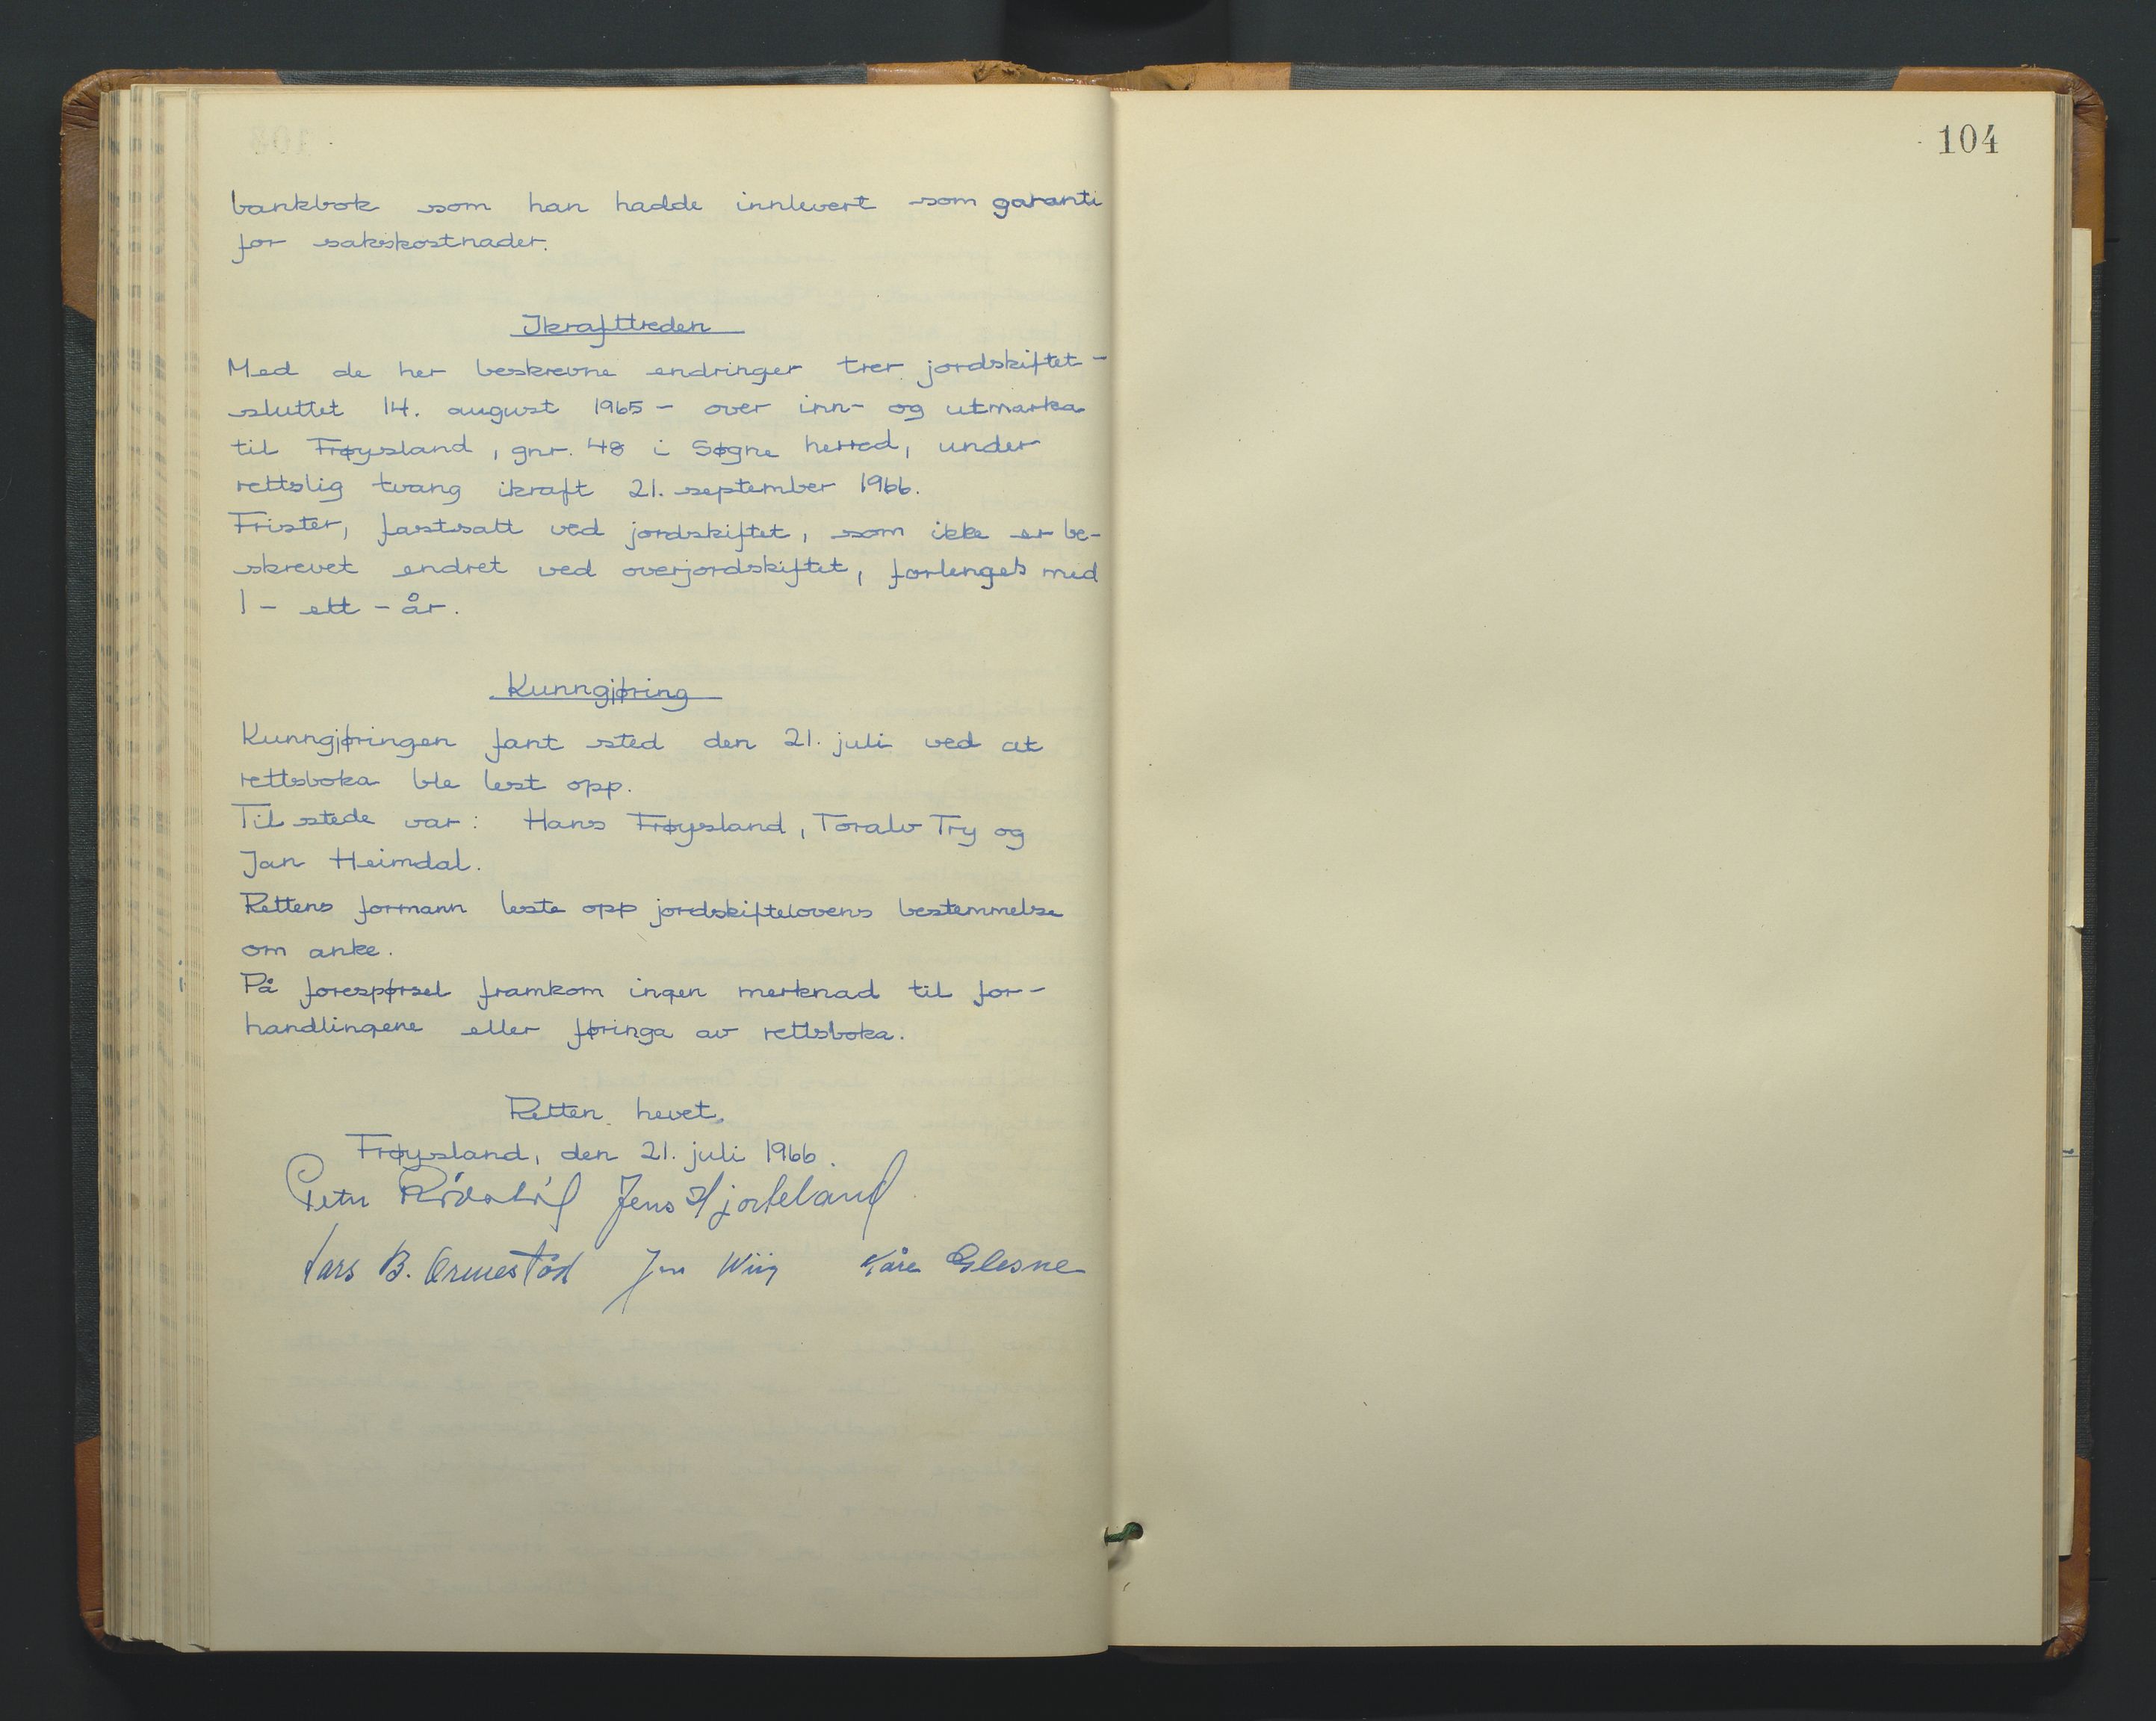 bankbok som han hadde innlevert som garanti
for sakskostnader.
Ikrafttreden
Med de her beskrevne endringer trer jordskiftet -
sluttet 14. august 1965 - over inn- og utmarka
til Frøysland, gnr. 48 i Søgne herred, under
rettslig tvang ikraft 21. september 1966.
Frister, fastsatt ved jordskiftet, som ikke er be-
skrevet endret ved overjordskiftet, forlenges med
1 - ett - år.
Kunngjøring
Kunngjøringen fant sted den 21. juli ved at
rettsboka ble lest opp.
Til stede var: Hans Frøysland, Toralv Try og
Jan Heimdal.
Rettens formann leste opp jordskiftelovens bestemmelse
om anke.
På forespørsel framkom ingen merknad til for-
handlingene eller føringa av rettsboka.
Retten hevet.
Frøysland, den 21. juli 1966.
Jens Hjorteland
Lars B. Ormestad Jens Wiig Kåre Glesne
104